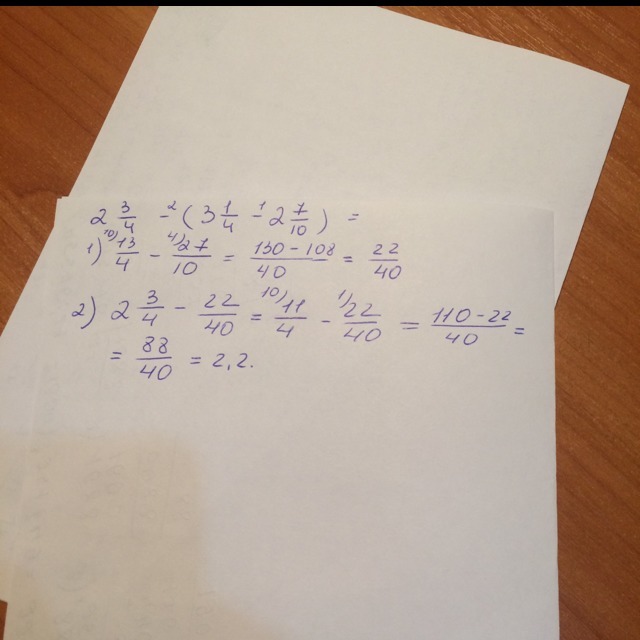 2 3/4 -² (3 1/4 -¹ 2 7/10) =
1) ¹⁰⁾13/4 - ⁴⁾27/10 = 130-108/40 = 22/40
2) 2 3/4 - 22/40 = ¹⁰⁾11/4 - ¹⁾22/40 = 110-22/40 =
= 88/40 = 2,2.